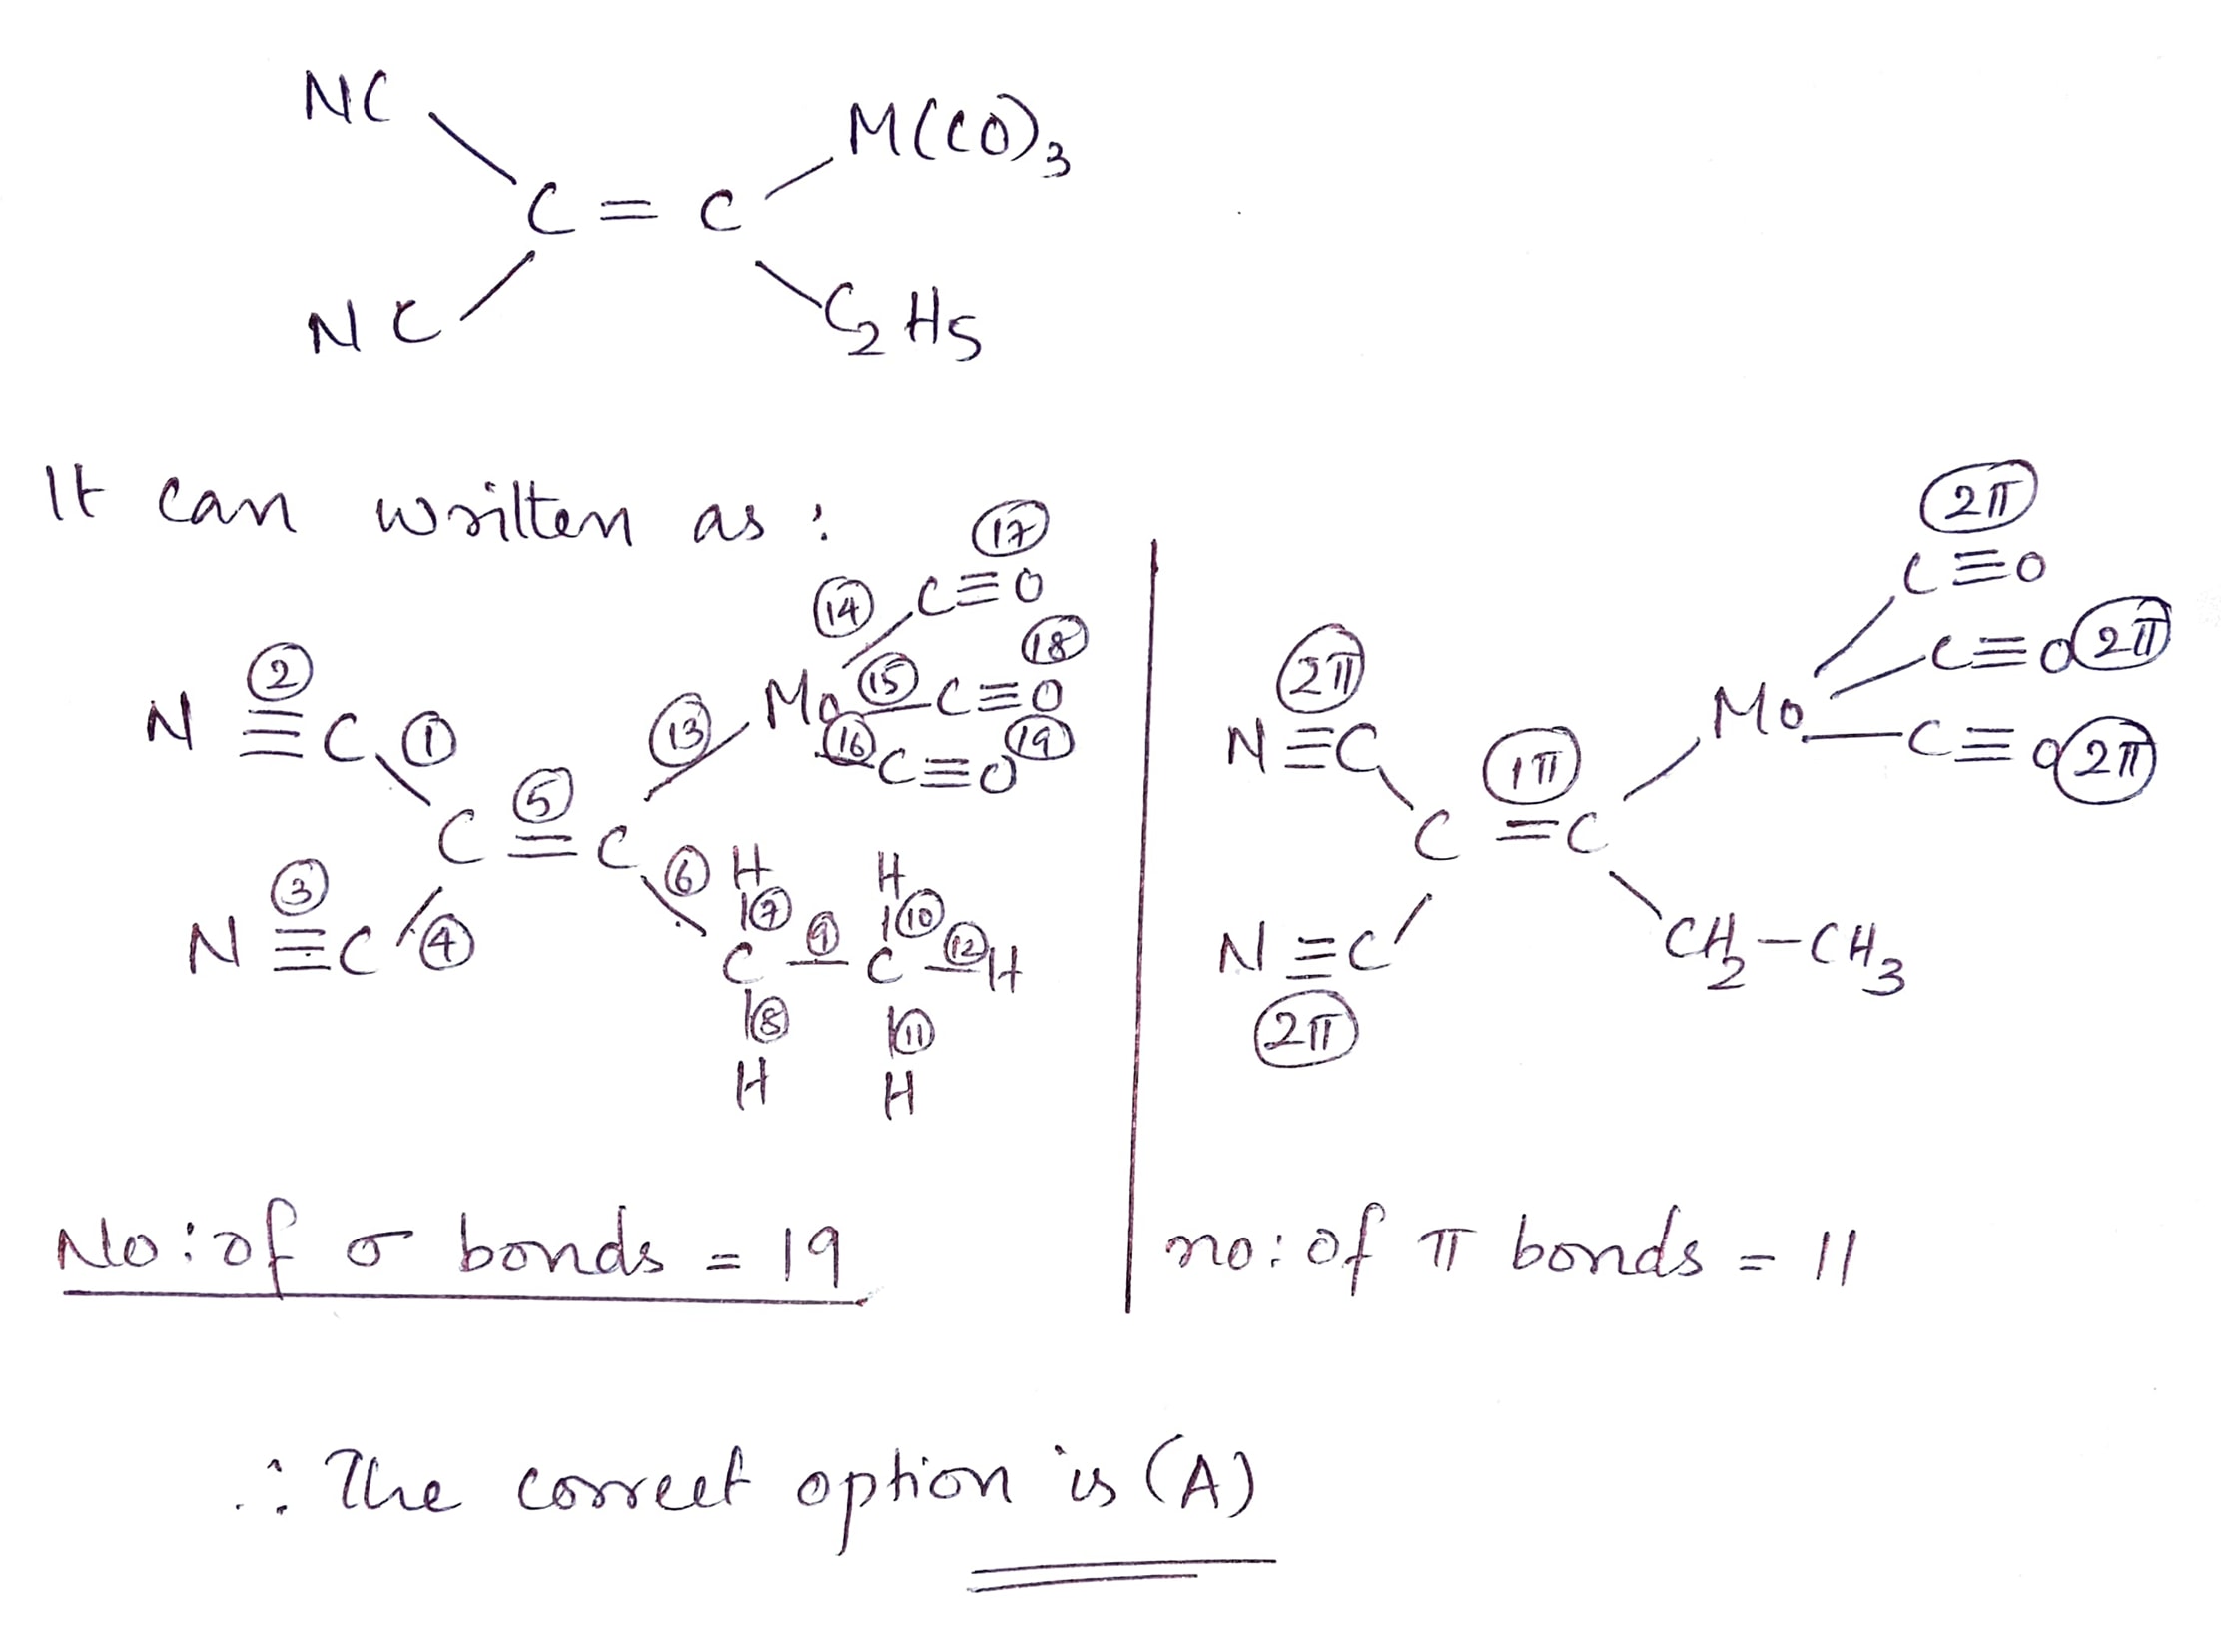 NC
M(CO)3
C = C
NC
C2H5
It can written as :
17
14 C≡O
18
2
15 C≡O
N≡C 1
13 Mo
16 C≡O 19
5
C = C
3
6 H H
7 10
N≡C 4
C 9 C 12 H
8 11
H H
No: of σ bonds = 19
2π
C≡O
2π
C≡O 2π
N≡C
1π
Mo
C≡O 2π
C = C
N≡C
CH2-CH3
2π
no: of π bonds = 11
∴ The correct option is (A)